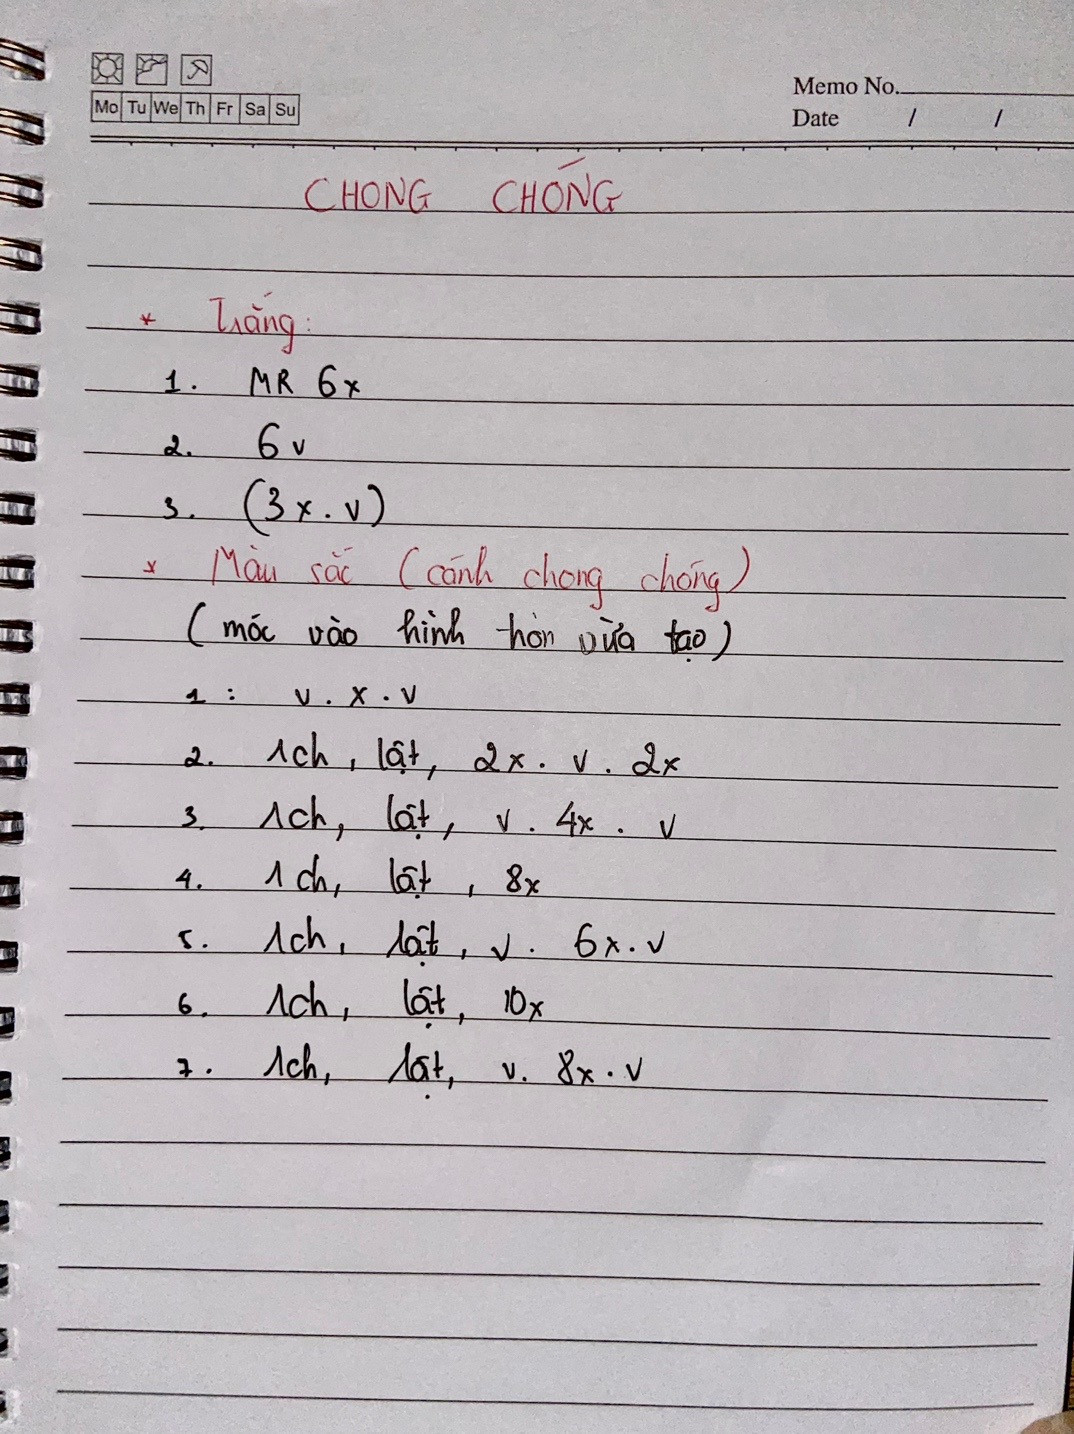 Mo Tu We Th Fr Sa Su
Memo No.
Date / /
CHONG CHÓNG
* Trắng:
1. MR 6x
2. 6v
3. (3x.v)
* Màu sắc (cánh chong chóng)
(móc vào hình tròn vừa tạo)
1: v.x.v
2. 1ch, lật, 2x.v.2x
3. 1ch, lật, v.4x.v
4. 1ch, lật, 8x
5. 1ch, lật, v.6x.v
6. 1ch, lật, 10x
7. 1ch, lật, v.8x.v